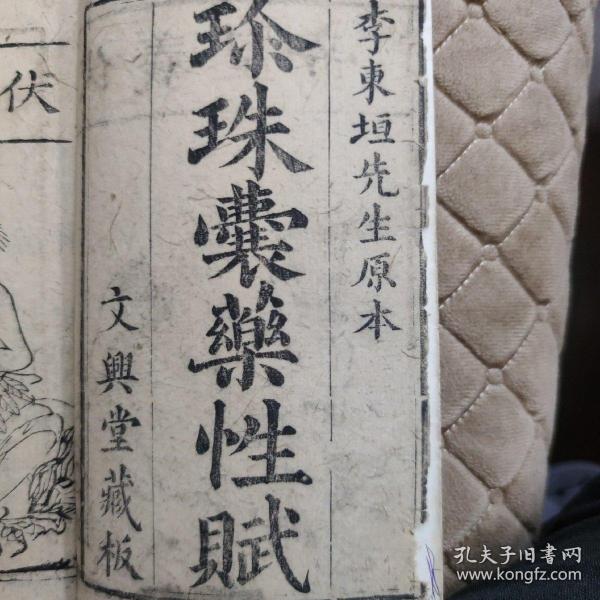 李東垣先生原本
珍珠囊藥性賦
文興堂藏板
伏
孔夫子旧书网
www.kongfz.com